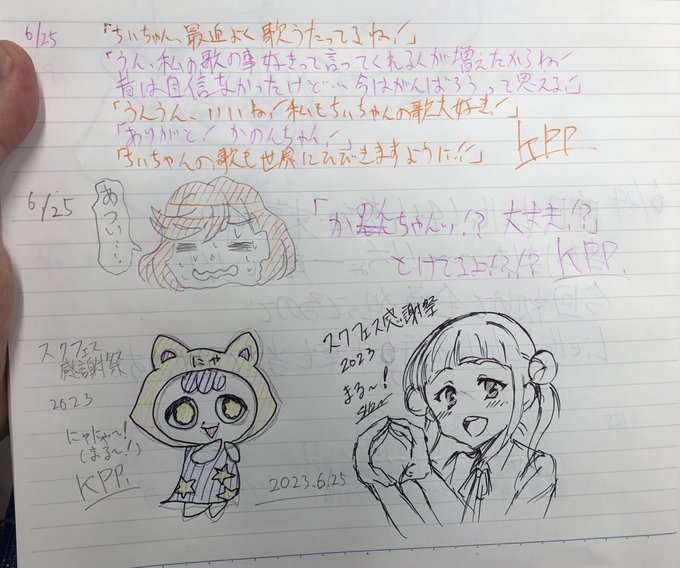 6/25
「ちぃちゃん、最近よく歌うたってるね!」
「うん、私の歌の事好きって言ってくれる人が増えたからね!
昔は自信なかったけど… 今はがんばろうって思える!」
「うんうん、いいね!私もちぃちゃんの歌大好き!」
「ありがと! かのんちゃん!」
「ちぃちゃんの歌も世界にひびきますように!!」
KPP
6/25
あつい…
「かのんちゃんッ!? 大丈夫!?」
とけてるよ!?!? KPP.
スクフェス
感謝祭
2023
にゃにゃ〜!
(まる〜!)
KPP.
にゃ
2023.6.25
スクフェス感謝祭
2023
まる〜!